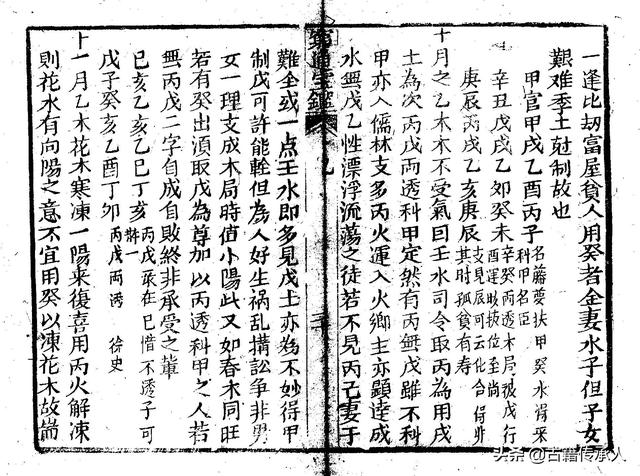 一逢比刼富屋貧人用癸者金妻水子但子女
艱难季土尅制故也
甲官甲戌乙酉丙子 名藤蘿扶甲癸水滑采
科甲名臣
辛丑戊戌乙卯癸未 辛癸丙透木局被戊行
酉運 位至尚
庚辰丙戌乙亥庚辰 支見辰可云化合得非
其时孤貧有寿
十月之乙木木不受氣囙壬水司令取丙為用戊
土為次丙戊两透科甲定然有丙無戊雖不科
甲亦入儒林支多丙火運入火鄉主亦顯達成
水無戊乙性漂浮流荡之徒若不見丙己妻于
窮通宝鑑 乙
難全或一点壬水即多見戊土亦為不妙得甲
制戊可許能軽但為人好生禍乱搆訟争非男
女一理支成木局時值小陽此又如春木同旺
若有癸出須取戊為尊加以丙透科甲之人若
無丙戊二字自成自敗終非承受之輩
己亥乙亥乙巳丁亥 丙戊聚在巳惜不透子可
戊子癸亥乙酉丁卯 丙戊两透
十一月乙木花木寒凍一陽来復喜用丙火解凍
則花水有向陽之意不宜用癸以凍花木故耑
头条 @古籍传承人